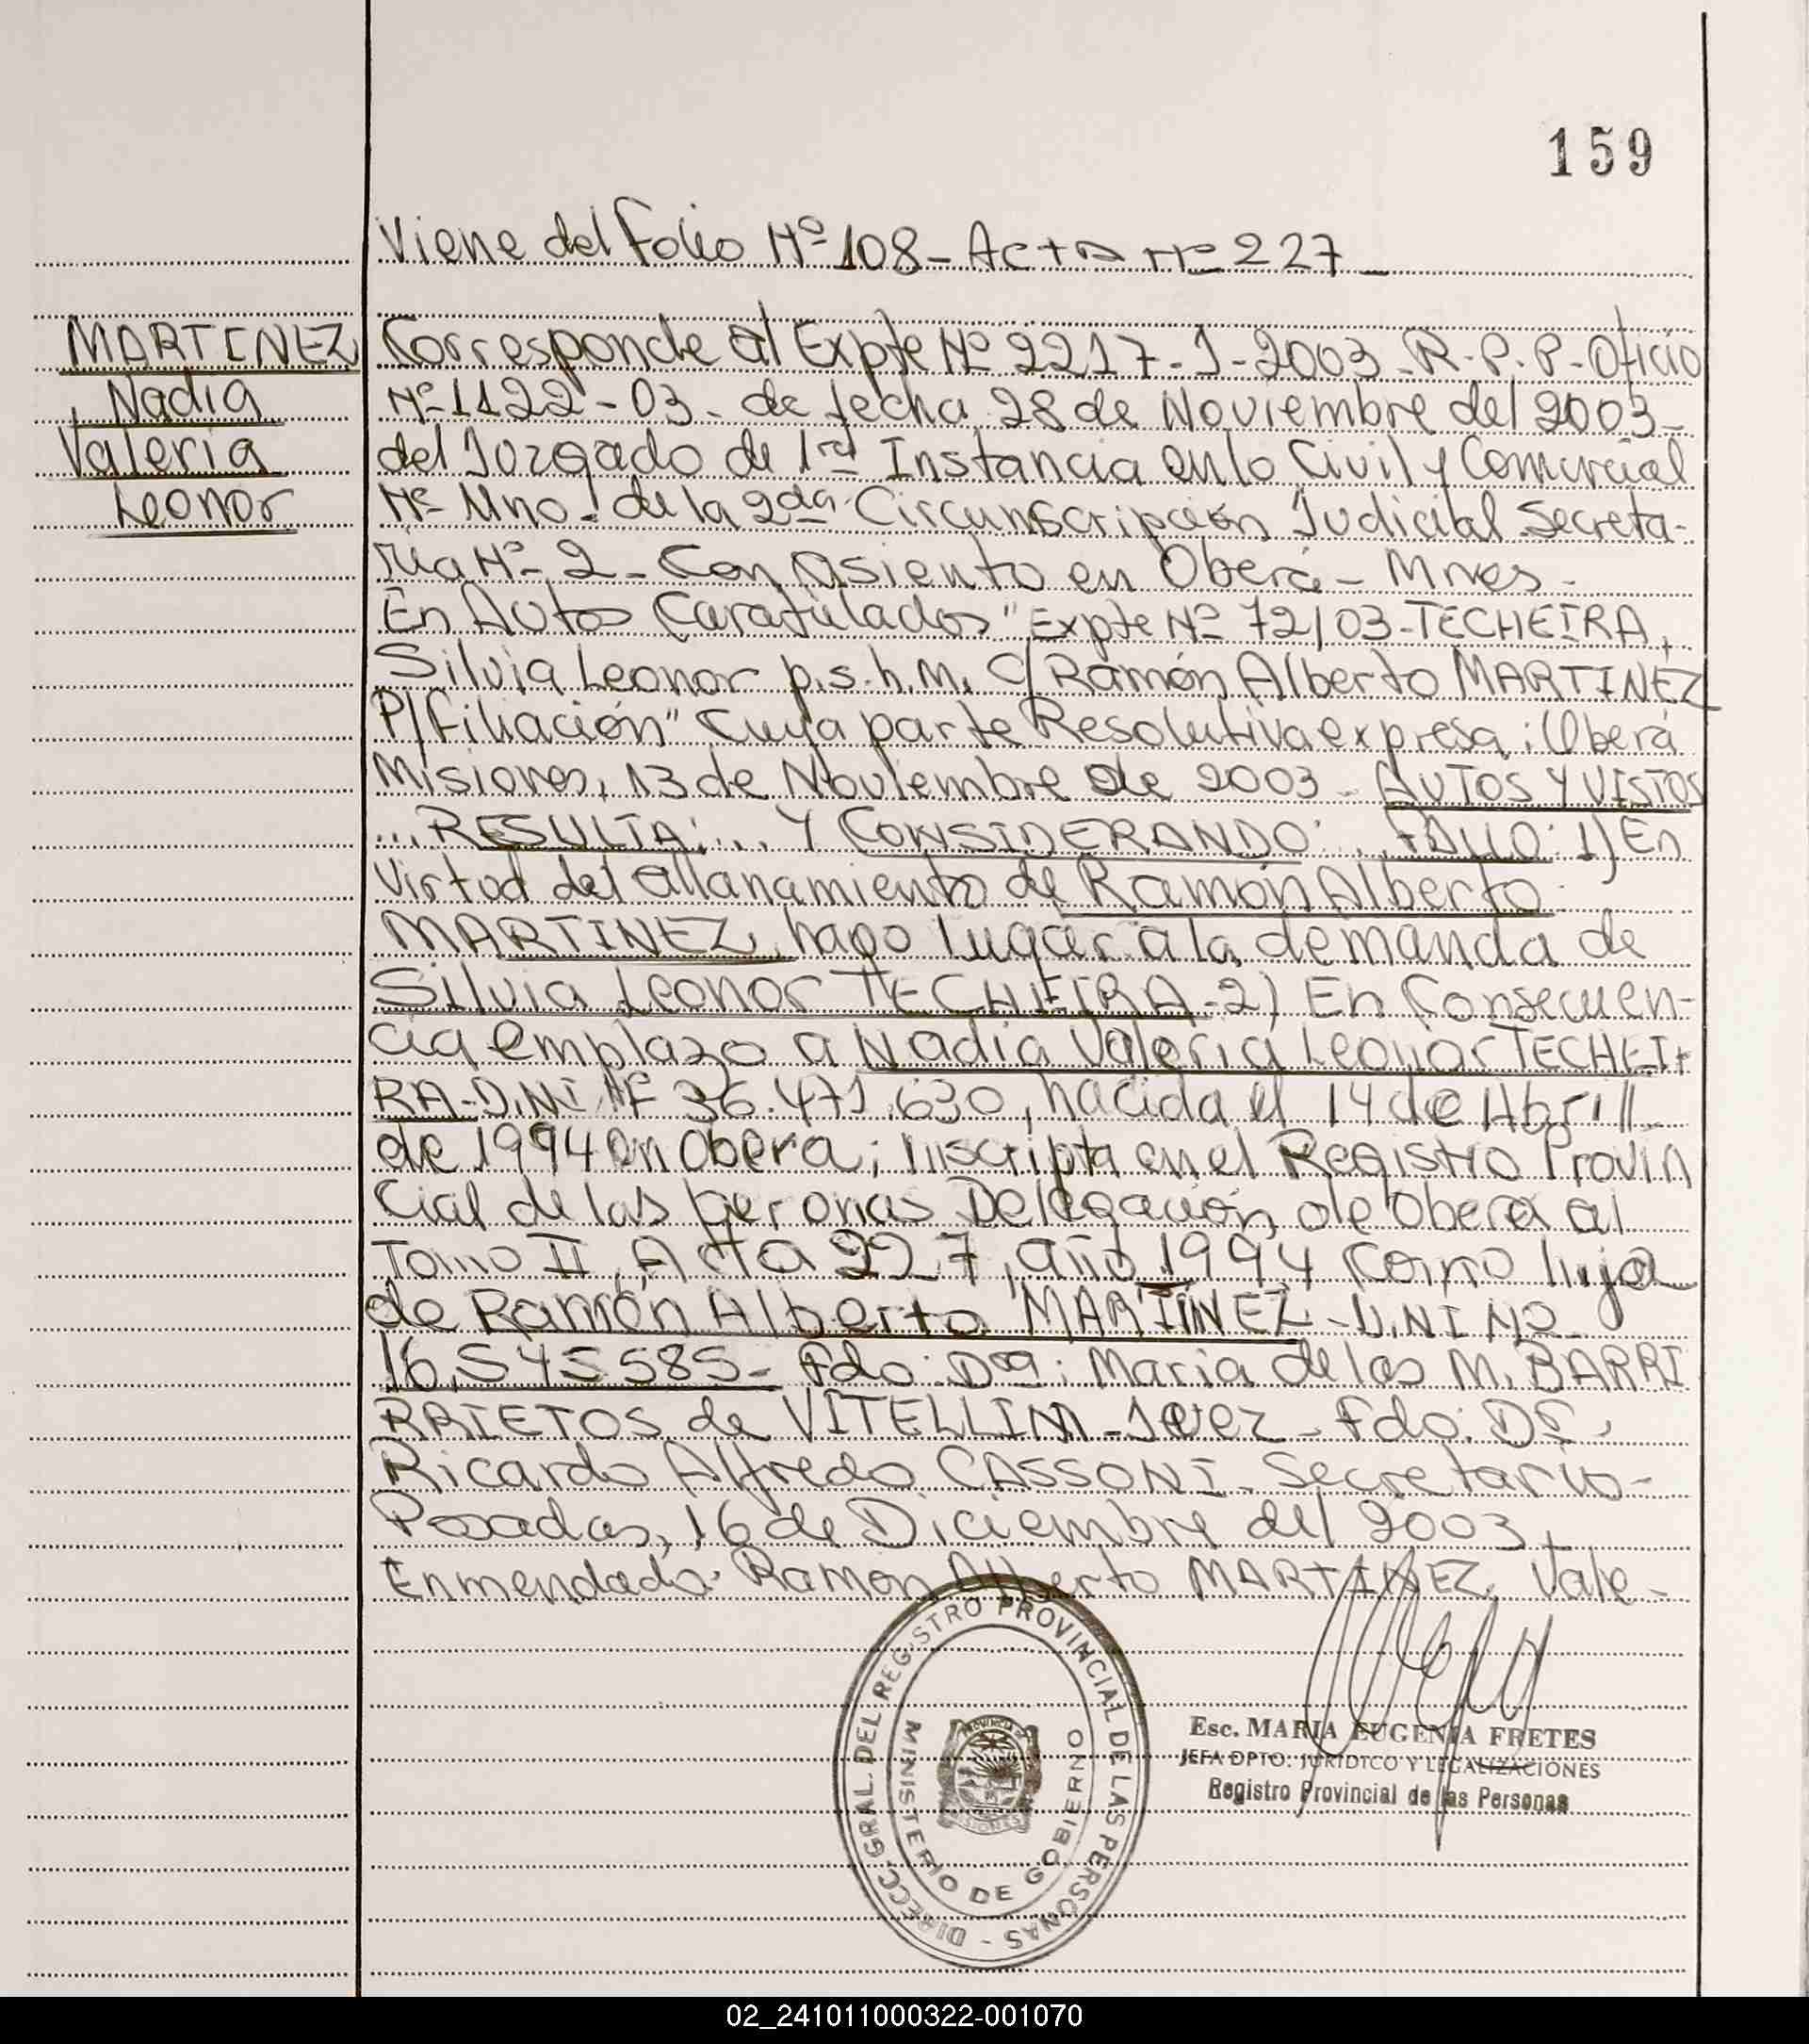 159
Viene del Folio Nº 108 - Acta Nº 227 -
MARTINEZ
Nadia
Valeria
Leonor
Corresponde al Expte Nº 2217-J-2003-R.P.P-Oficio
Nº 1122-03- de fecha 28 de Noviembre del 2003-
del Juzgado de 1ra Instancia en lo Civil y Comercial
Nº Uno. de la 2da Circunscripción Judicial Secreta-
ria Nº 2 - Con Asiento en Oberá - Mnes -
En Autos Caratulados "Expte Nº 72/03-TECHEIRA,
Silvia Leonor p.s.h.m. C/ Ramón Alberto MARTINEZ
P/Filiación" Cuya parte Resolutiva expresa: Oberá
Misiones, 13 de Noviembre de 2003 - AUTOS Y VISTOS
...RESULTA:... Y CONSIDERANDO:... FALLO: 1) En
Virtud del allanamiento de Ramón Alberto
MARTINEZ, hago lugar a la demanda de
Silvia Leonor TECHEIRA-2) En Consecuen-
cia emplazo a Nadia Valeria Leonor TECHEI-
RA-D.NI Nº 36.471.630, nacida el 14 de Abril
de 1994 en Obera; inscripta en el Registro Provin
cial de las Peronas Delegación de Obera al
Tomo II, Acta 227, año 1994 como hija
de Ramón Alberto MARTINEZ - D.NI Nº
16.545585- Fdo: Dra: Maria de las M. BARRI
RRIETOS de VITELLINI-Juez- Fdo: Dr.
Ricardo Alfredo CASSONI- Secretario-
Posadas, 16 de Diciembre del 2003,
Enmendado: Ramon Alberto MARTINEZ Vale-
DIRECC. GRAL. DEL REGISTRO PROVINCIAL DE LAS PERSONAS -
MINISTERIO DE GOBIERNO
PROVINCIA DE
MISIONES
Esc. MARIA EUGENIA FRETES
JEFA DPTO. JURIDICO Y LEGALIZACIONES
Registro Provincial de las Personas
02_241011000322-001070